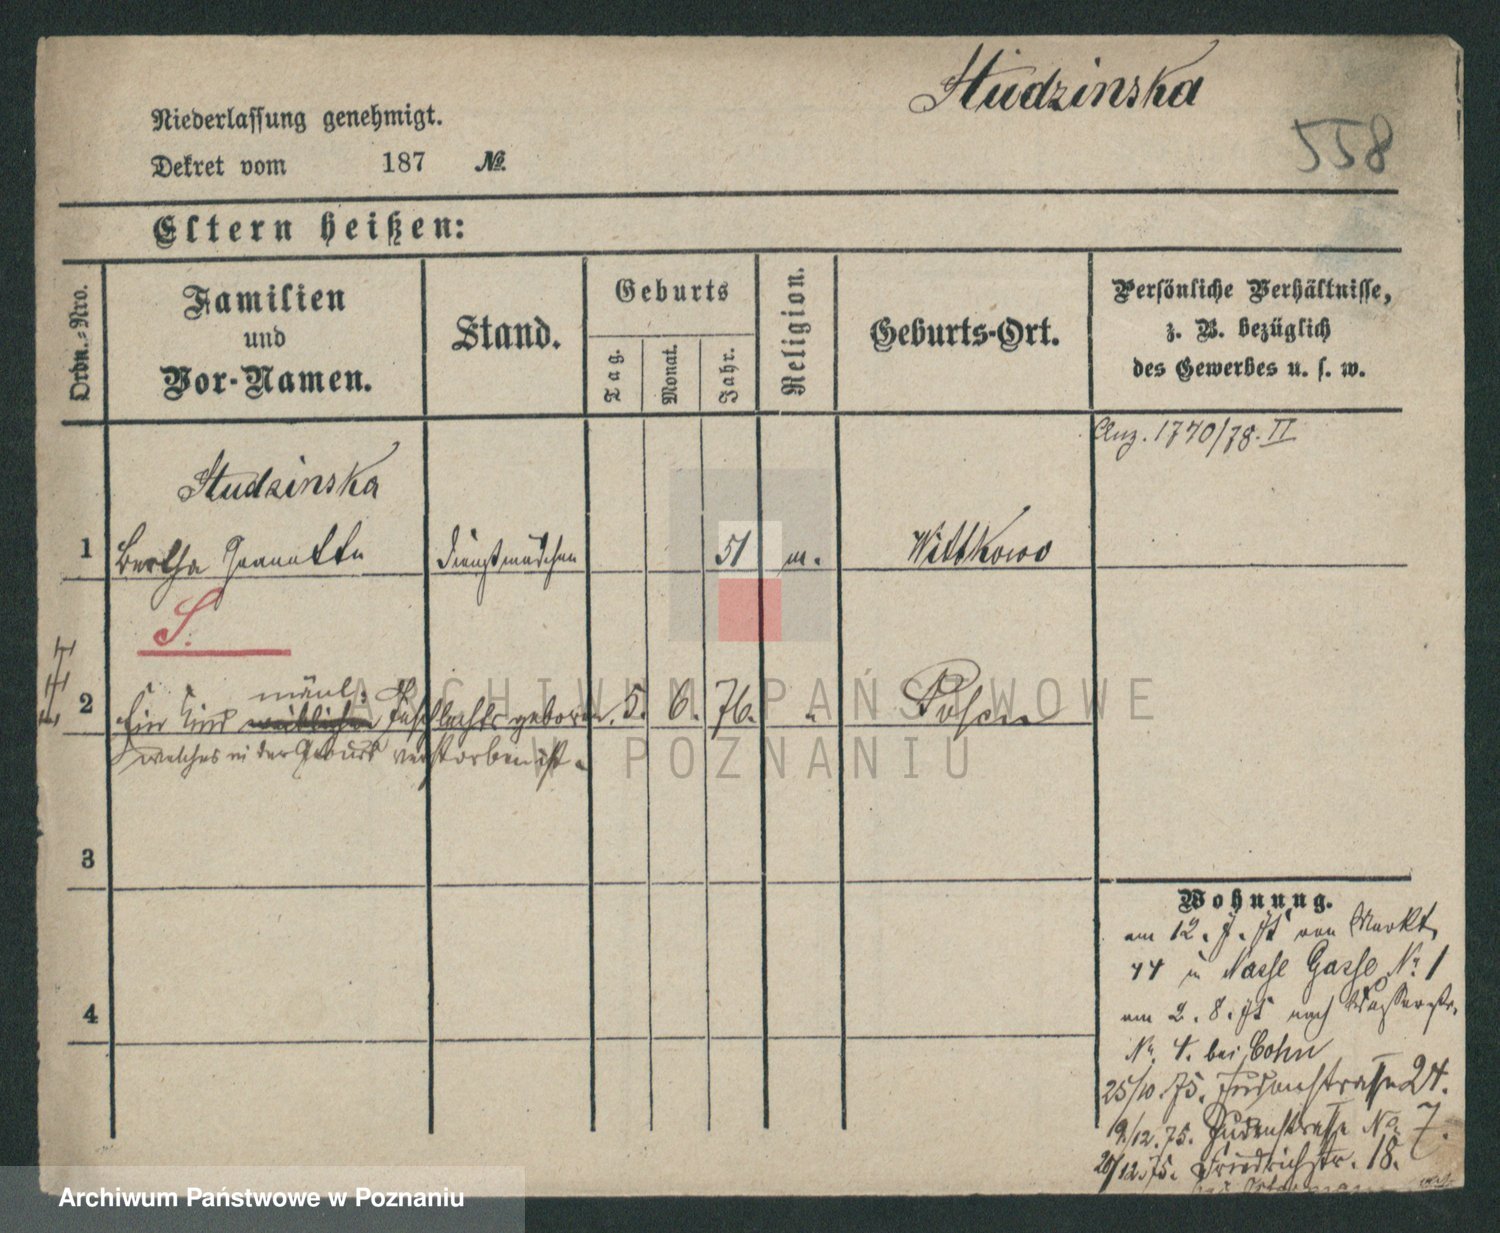 Studzinska
558
Niederlassung genehmigt.
Dekret vom 187 №.
Eltern heißen:
Ordn.-Nro.
Familien
und
Vor-Namen.
Stand.
Geburts
Tag.
Monat.
Jahr.
Religion.
Geburts-Ort.
Persönliche Verhältnisse,
z. B. bezüglich
des Gewerbes u. s. w.
Anz. 1770/78. II
Studzinska
1 Bertha Dienstmädchen 51 m. Wittkowo
S.
männl:
2 Ein Kind weiblichen Geschlechts geboren. 5. 6. 76. " Posen
welches in der Geburt verstorben ist.
3
4
Wohnung.
am 12. 7. 75 von Markt
44 in Nasse Gasse No 1
am 2. 8. 75 nach Wasserstr.
No. 4. bei Cohn
25/10. 75. Judenstrasse 24.
9/12. 75. Judenstrasse No 7.
20/12 75. Friedrichstr. 18.
ARCHIWUM PAŃSTWOWE
W POZNANIU
Archiwum Państwowe w Poznaniu